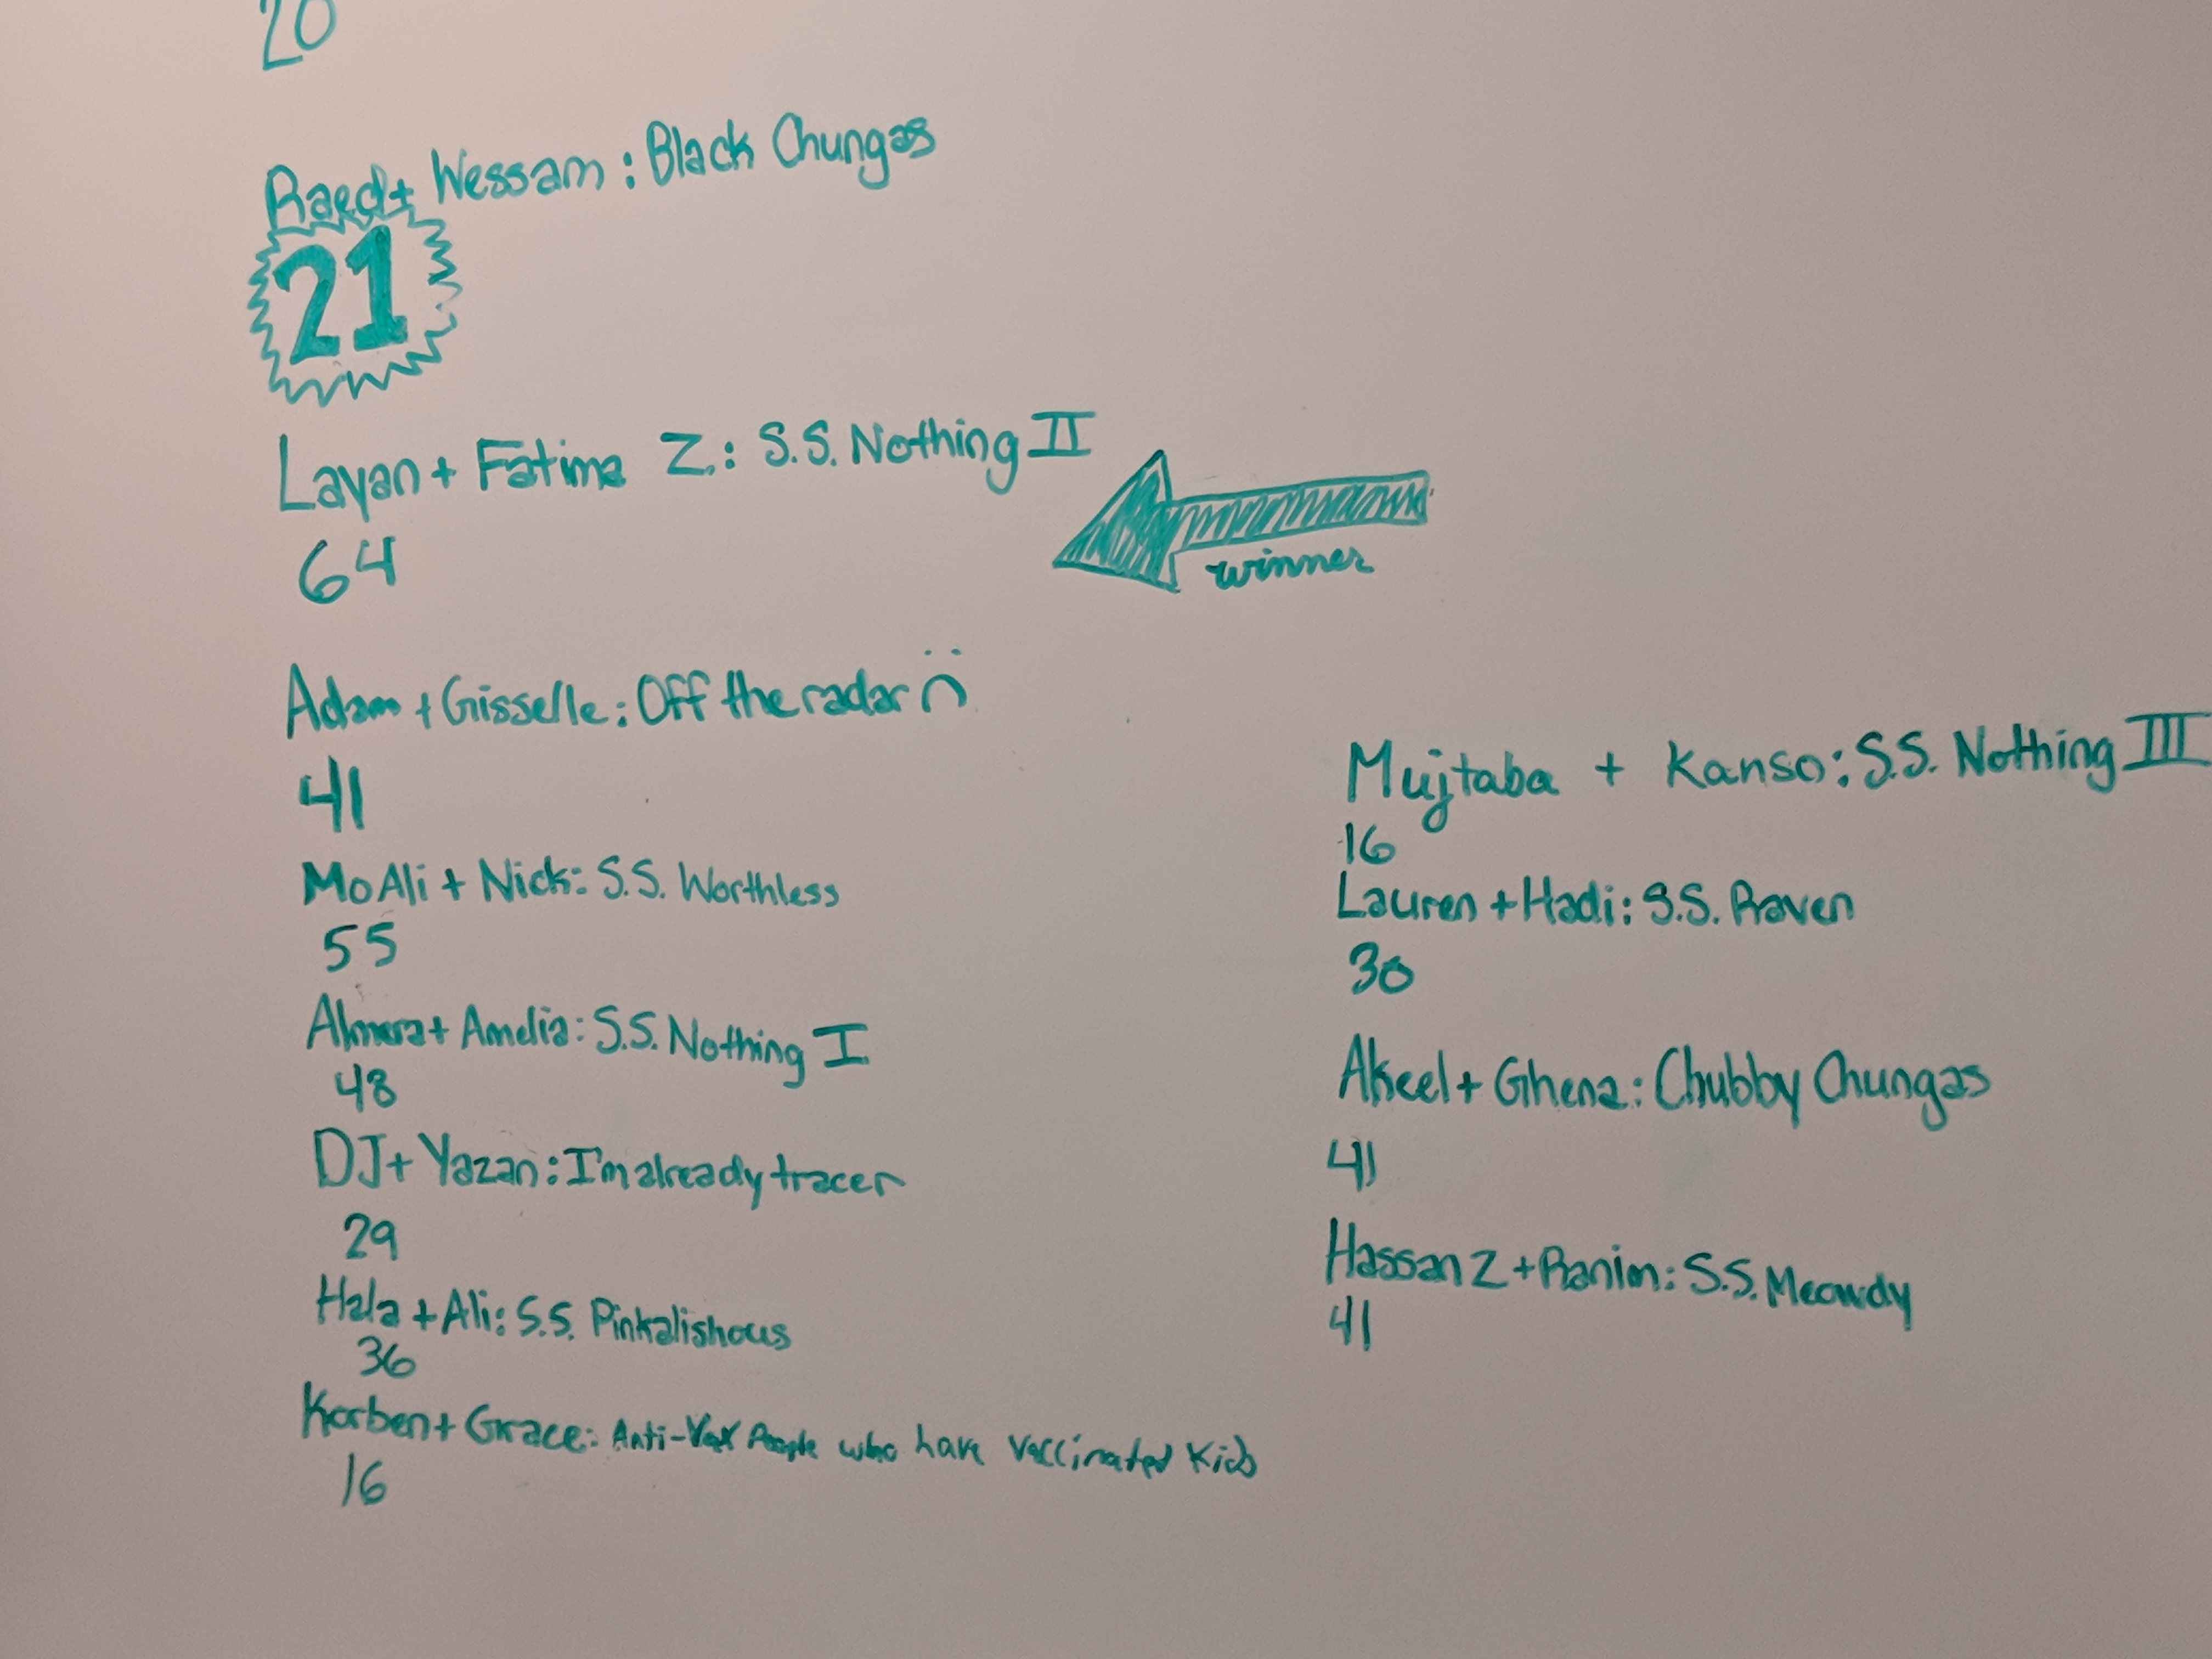 20
Raed + Wessam: Black Chungas
21
Layan + Fatima Z.: S.S. Nothing II
64
winner
Adam + Gisselle: Off the radar
41
Mo Ali + Nick: S.S. Worthless
55
+ Amelia: S.S. Nothing I
48
DJ + Yazan: I'm already tracer
29
Hala + Ali: S.S. Pinkalishous
36
Korben + Grace: Anti-Vax People who have vaccinated kids
16
Mujtaba + Kanso: S.S. Nothing III
16
Lauren + Hadi: S.S. Raven
30
Akeel + Ghena: Chubby Chungas
41
Hassan Z + Ranim: S.S. Meowdy
41